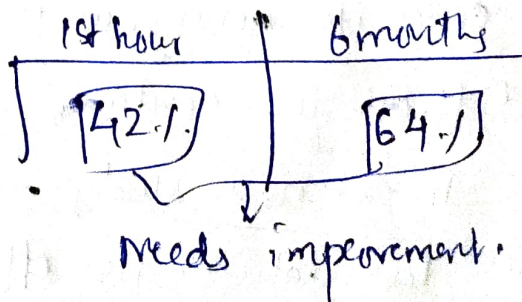 1st hour 6 months
42% 64%
Needs impeorement.